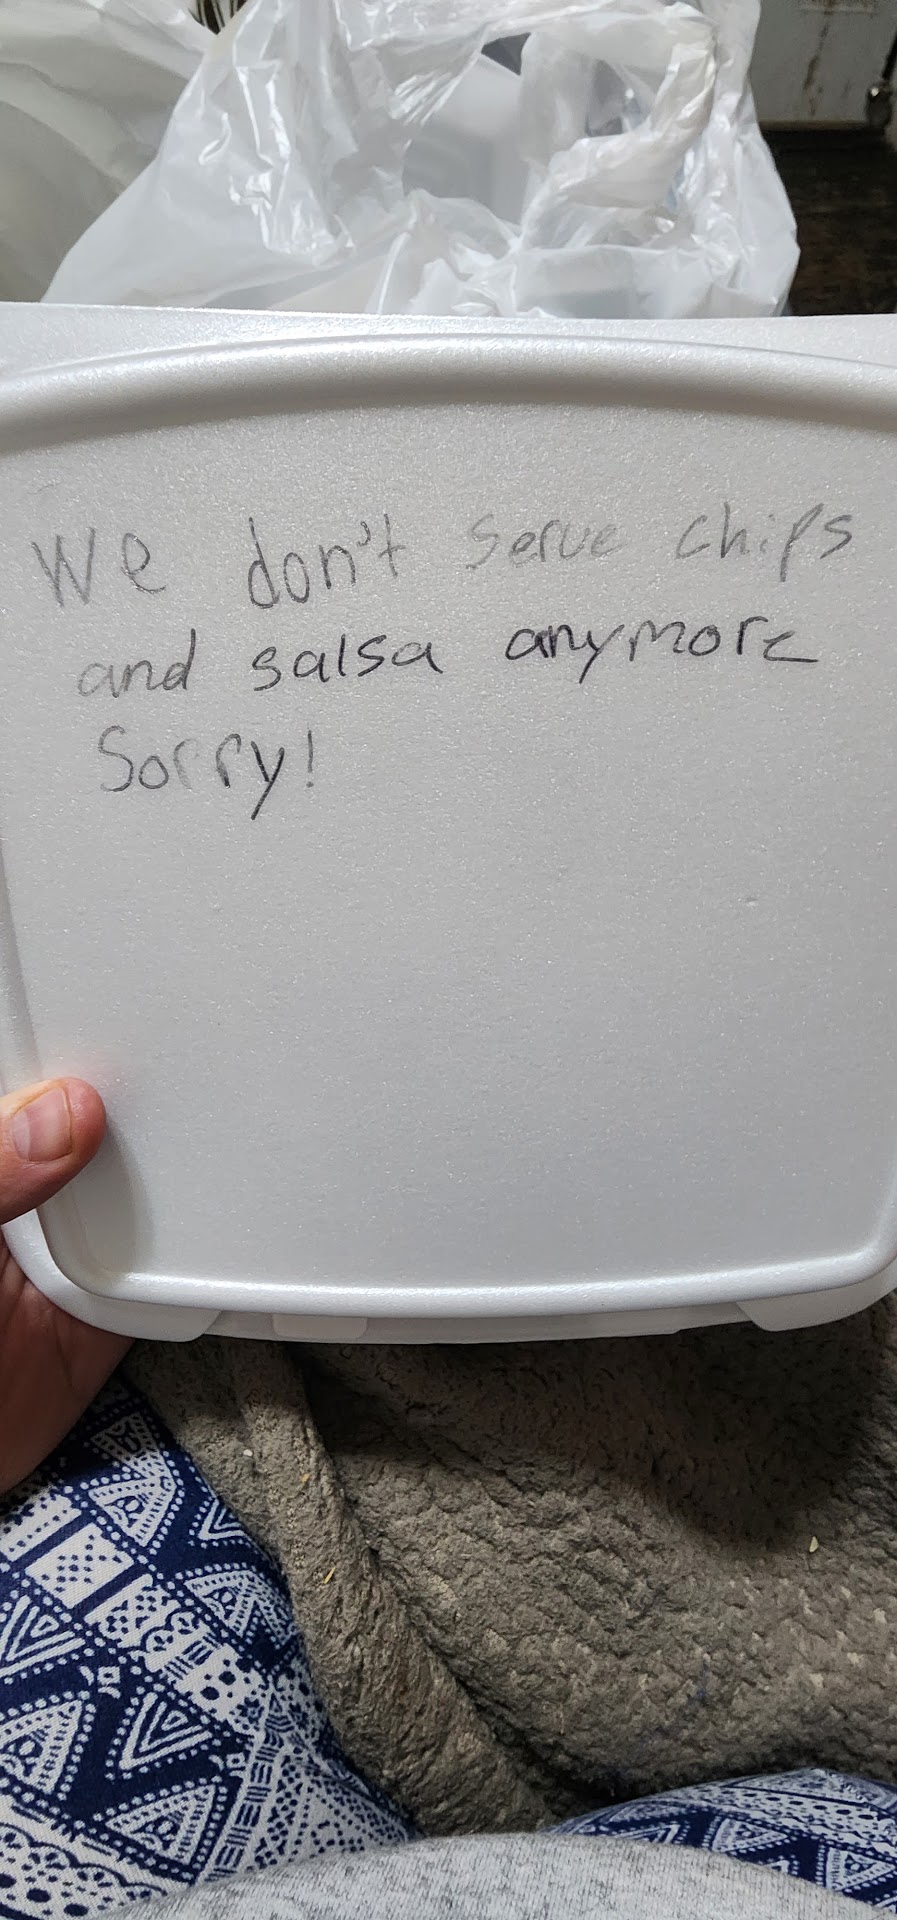 We don't serve chips
and salsa anymore
Sorry!